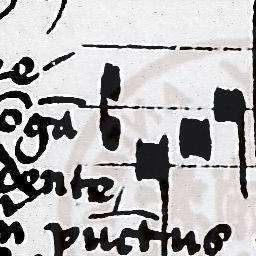 e
oga
dente
n punctus